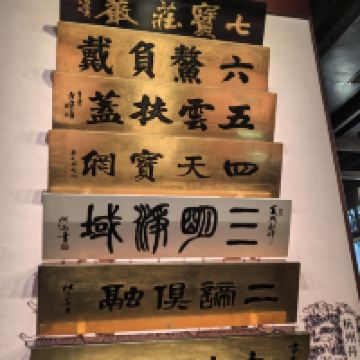 七寶莊嚴
六鰲負戴
五雲扶蓋
四天寶網
三明淨域
二諦俱融